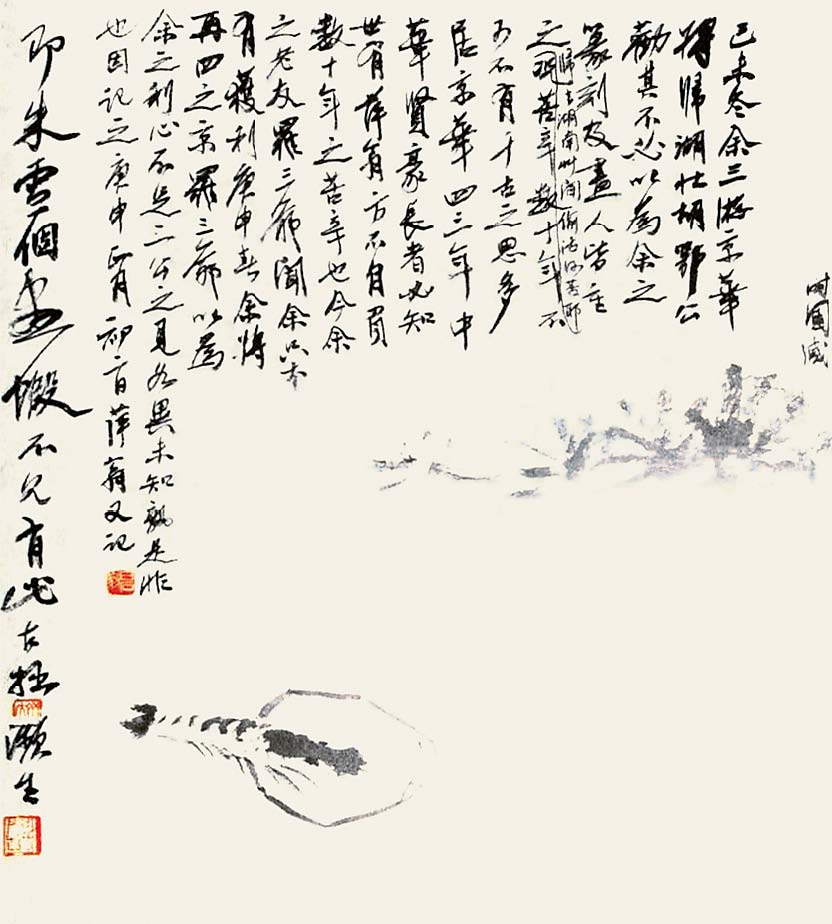 己未冬余三遊京華
將歸湖北胡鄂公
勸其不必以為余之
篆刻及畫人皆重
之況苦辛數十年不
歸去湖南艸間偷活何苦耶
可不有千古之思多
居京華四三年中
華賢豪長者必知
世有萍翁方不自負
數十年之苦辛也今余
之老友羅三爺聞余只本
有獲利庚申春余將
再四之京羅三爺以為
余之利心不足二公之見如異未知孰是非
也因記之庚申正月初二日萍翁又記
即朱雪個畫蝦不見有此古拙
瀕生